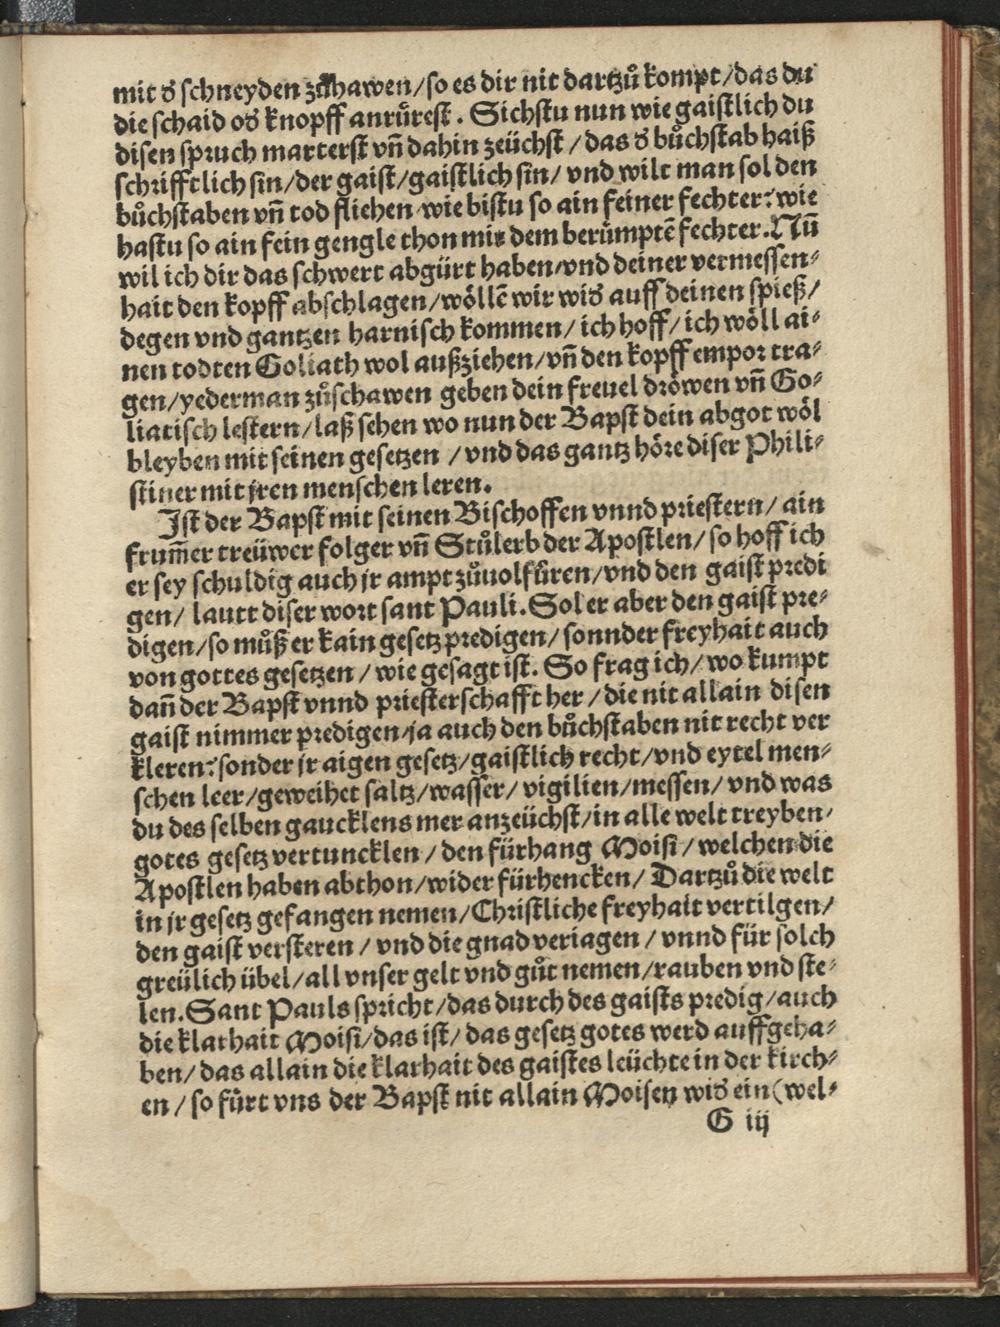 mit ð schneyden zůhawen/so es dir nit dartzů kompt/das du
die schaid oð knopff anrůrest. Sichstu nun wie gaistlich du
disen spruch marterst vñ dahin zeüchst/das ð bůchstab haiß
schrifftlich sin/der gaist/gaistlich sin/vnd wilt man sol den
bůchstaben vñ tod fliehen wie bistu so ain feiner fechter? wie
hastu so ain fein gengle thon mit dem berůmptẽ fechter. Nũ
wil ich dir das schwert abgürt haben/vnd deiner vermessen-
hait den kopff abschlagen/wöllẽ wir wið auff deinen spieß/
degen vnd gantzen harnisch kommen/ich hoff/ich wöll ai-
nen todten Goliath wol außziehen/vñ den kopff empor tra-
gen/yederman zůschawen geben dein freuel dröwen vñ Go-
liatisch lestern/laß sehen wo nun der Bapst dein abgot wöl
bleyben mit seinen gesetzen/vnd das gantz höre diser Phili-
stiner mit jren menschen leren.
Ist der Bapst mit seinen Bischoffen vnnd priestern/ain
frum̃er treüwer folger vñ Stůlerb der Apostlen/so hoff ich
er sey schuldig auch jr ampt zůuolfüren/vnd den gaist predi
gen/lautt diser wort sant Pauli. Sol er aber den gaist pre-
digen/so můß er kain gesetz predigen/sonnder freyhait auch
von gottes gesetzen/wie gesagt ist. So frag ich/wo kumpt
dañ der Bapst vnnd priesterschafft her/die nit allain disen
gaist nimmer predigen/ja auch den bůchstaben nit recht ver
kleren? sonder jr aigen gesetz/gaistlich recht/vnd eytel men-
schen leer/geweihet saltz/wasser/vigilien/messen/vnd was
du des selben gaucklens mer anzeüchst/in alle welt treyben/
gotes gesetz vertuncklen/den fürhang Moisi/welchen die
Apostlen haben abthon/wider fürhencken/Dartzů die welt
in jr gesetz gefangen nemen/Christliche freyhait vertilgen/
den gaist versteren/vnd die gnad veriagen/vnnd für solch
greülich übel/all vnser gelt vnd gůt nemen/rauben vnd ste-
len. Sant Pauls spricht/das durch des gaists predig/auch
die klarhait Moisi/das ist/das gesetz gotes werd auffgeha-
ben/das allain die klarhait des gaistes leüchte in der kirch-
en/so fürt vns der Bapst nit allain Moisen wið ein (wel-
G iij